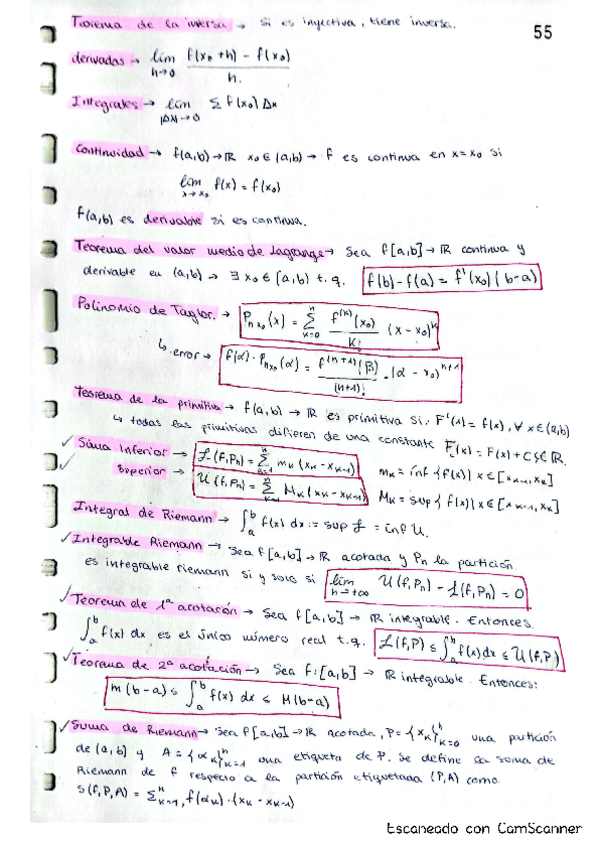 Teorema de la inversa → Si es inyectiva, tiene inversa.
55
derivadas → lim h→0 f(x₀+h) - f(x₀) / h.
Integrales → lim |Δx|→0 Σ f(x₀) Δx
Continuidad → f(a,b)→ℝ x₀∈(a,b) → f es continua en x=x₀ si
lim x→x₀ f(x) = f(x₀)
f(a,b) es derivable si es continua.
Teorema del valor medio de Lagrange → Sea f[a,b]→ℝ continua y
derivable en (a,b) → ∃ x₀∈(a,b) t.q. f(b)-f(a) = f'(x₀)(b-a)
Polinomio de Taylor. → Pₙ,ₓ₀(x) = Σⁿₖ₌₀ f⁽ᵏ⁾(x₀) / k! (x-x₀)ᵏ
↳ error → f(α)-Pₙ,ₓ₀(α) = f⁽ⁿ⁺¹⁾(β) / (n+1)! · (α-x₀)ⁿ⁺¹
Teorema de la primitiva → f(a,b) → ℝ es primitiva si: F'(x) = f(x), ∀ x∈(a,b)
↳ todas las primitivas difieren de una constante F(x) = F(x) + C, C∈ℝ.
✓ Suma Inferior → ℒ(f,Pₙ) = Σⁿₖ₌₁ mₖ(xₖ-xₖ₋₁) mₖ = inf { f(x) | x∈[xₖ₋₁,xₖ]
✓ Superior → U(f,Pₙ) = Σⁿₖ₌₁ Mₖ(xₖ-xₖ₋₁) Mₖ = sup { f(x) | x∈[xₖ₋₁,xₖ]
Integral de Riemann → ∫ₐᵇ f(x) dx := sup ℒ = inf U.
✓ Integrable Riemann → Sea f[a,b]→ℝ acotada y Pₙ la partición.
es integrable riemann si y solo si lim n→+∞ U(f,Pₙ) - ℒ(f,Pₙ) = 0
✓ Teorema de 1ª acotación → Sea f[a,b] → ℝ integrable. Entonces.
∫ₐᵇ f(x) dx es el único número real t.q. ℒ(f,P) ≤ ∫ₐᵇ f(x)dx ≤ U(f,P)
✓ Teorama de 2ª acotación → Sea f:[a,b] → ℝ integrable. Entonces:
m(b-a) ≤ ∫ₐᵇ f(x) dx ≤ M(b-a)
✓ Suma de Riemann → Sea f[a,b]→ℝ acotada, P={xₖ}ⁿₖ₌₀ una partición
de (a,b) y A={αₖ}ⁿₖ₌₁ una etiqueta de P. Se define la suma de
Riemann de f respecto a la partición etiquetada (P,A) como
S(f,P,A) = Σⁿₖ₌₁, f(αₖ)·(xₖ-xₖ₋₁)
Escaneado con CamScanner